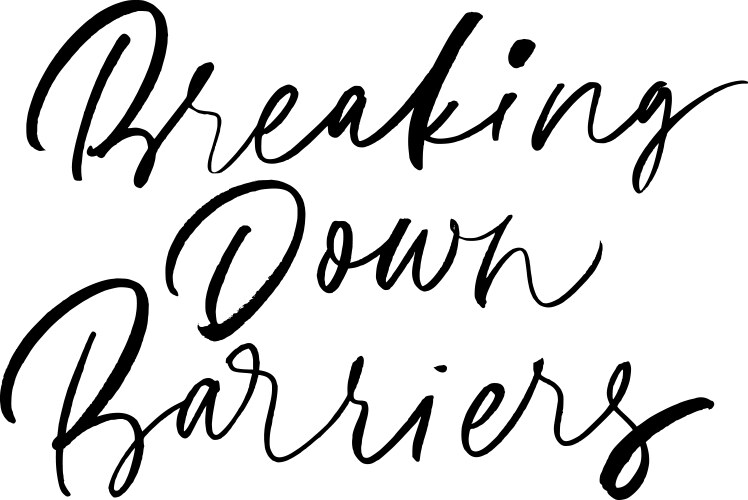 Breaking
Down
Barriers